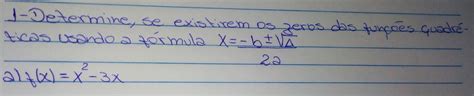 1-Determine, se existirem os zeros das funções quadrá-
ticas usando a fórmula X=-b±√Δ
2a
a) f(x)=x²-3x